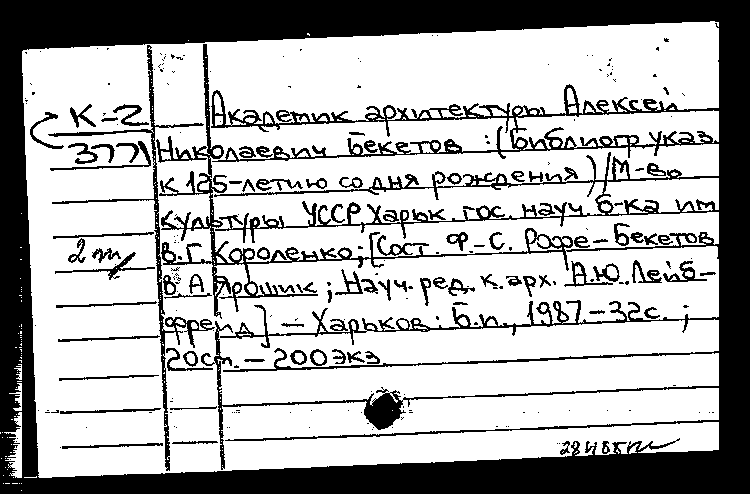 К-2
3771
Академик архитектуры Алексей
Николаевич Бекетов :(Библиогр. указ.
к 125-летию со дня рождения)/М-во
культуры УССР, Харьк. гос. науч. б-ка им
В.Г. Короленко; [Сост. Ф-С. Рофе-Бекетов
2 т
В.А. Ярошик ; Науч. ред. к. арх. А.Ю. Лейб-
фрейд] — Харьков : Б.и., 1987. — 32с. ;
20см. — 200 экз